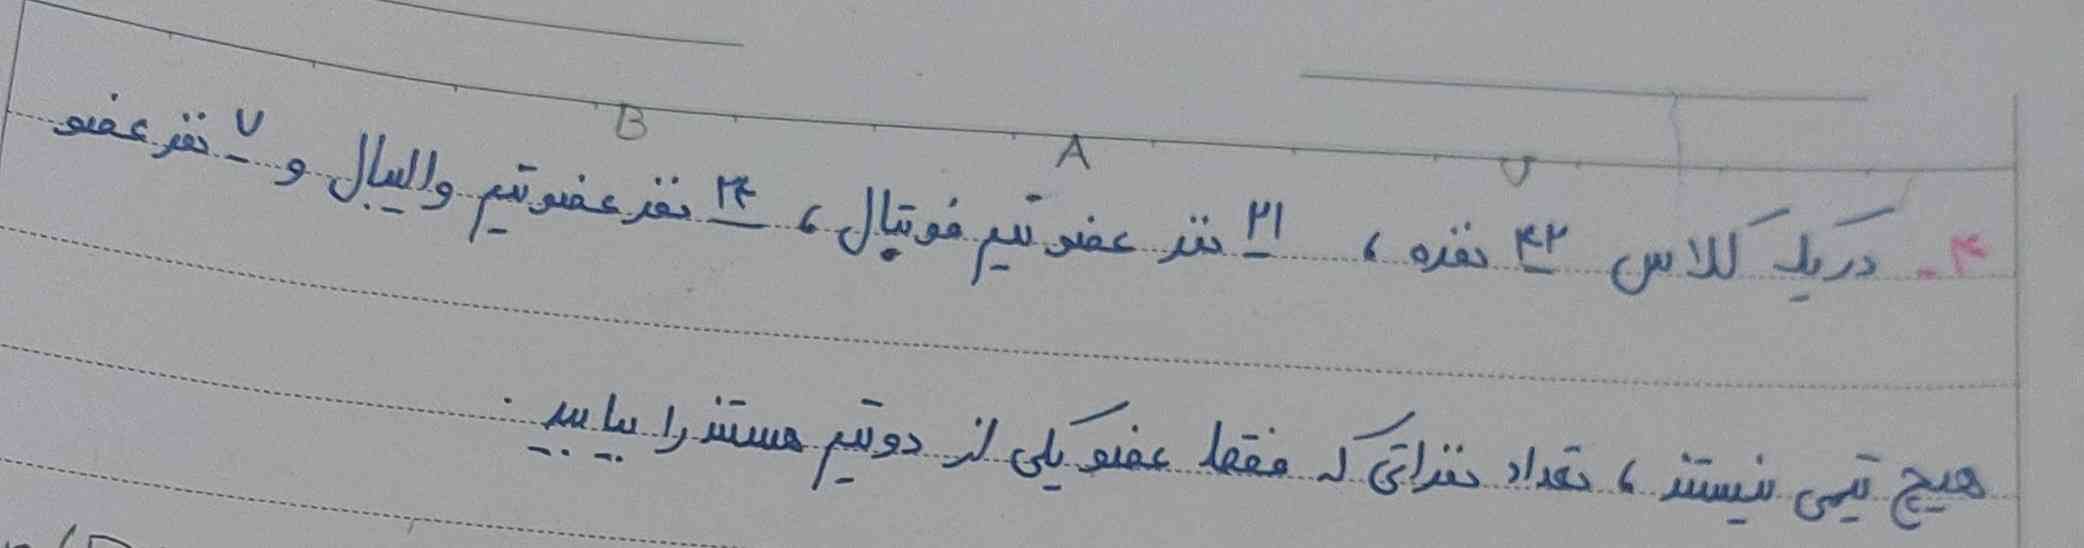 B A U
۴- در یک کلاس ۴۲ نفره ، ۲۱ نفر عضو تیم فوتبال ، ۲۴ نفر عضو تیم والیبال و ۷ نفر عضو
هیچ تیمی نیستند ، تعداد نفراتی که فقط عضو یکی از دو تیم هستند را بیابید .